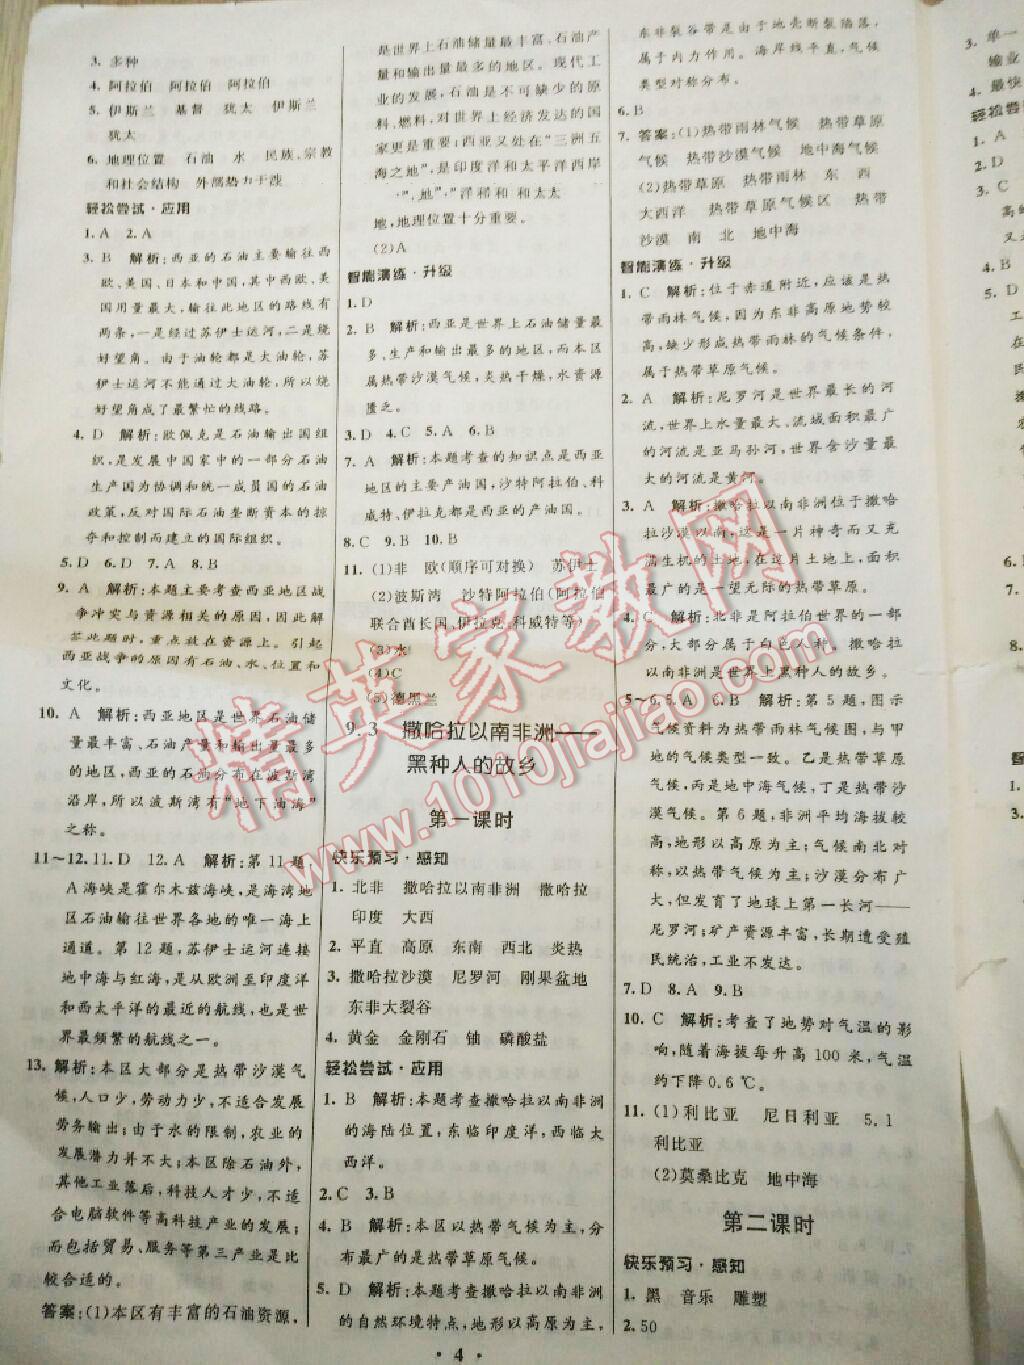 3. 多种
4. 阿拉伯 阿拉伯 阿拉伯
5. 伊斯兰 基督 犹太 伊斯兰
犹太
6. 地理位置 石油 水 民族、宗教
和社会结构 外部势力干涉
轻松尝试·应用
1. A 2. A
3. B 解析:西亚的石油主要输往西
欧、美国、日本和中国,其中西欧、美
国用量最大,输往此地区的路线有
两条,一是经过苏伊士运河,二是绕
好望角。由于油轮都是大油轮,苏
伊士运河不能通过大油轮,所以绕
好望角成了最繁忙的线路。
4. D 解析:欧佩克是石油输出国组
织,是发展中国家中的一部分石油
生产国为协调和统一成员国的石油
政策,反对国际石油垄断资本的掠
夺和控制而建立的国际组织。
5. D 6. D 7. A 8. B
9. A 解析:本题主要考查西亚地区战
争冲突与资源相关的原因,因此解
答此题时,重点放在资源上。引起
西亚战争的原因有石油、水、位置和
文化。
10. A 解析:西亚地区是世界石油储
量最丰富、产量和输出量最多
的地区,西亚的石油分布在波斯湾
沿岸,所以波斯湾有“地下油海”
之称。
11～12. 11. D 12. A 解析:第11题,
A海峡是霍尔木兹海峡,是海湾地
区石油输往世界各地的唯一海上
通道。第12题,苏伊士运河连接
地中海与红海,是从欧洲至印度洋
和西太平洋的最近的航线,也是世
界最频繁的航线之一。
13. 解析:本区大部分是热带沙漠气
候,人口少,劳动力少,不适合发展
劳务输出;由于水的限制,农业的
发展潜力并不大;本区除石油外,
其他工业落后,科技人才少,不适
合电脑软件等高科技产业的发展;
而包括贸易、服务等第三产业是比
较合适的。
答案:(1)本区有丰富的石油资源,
是世界上石油储量最丰富、石油产
量和输出量最多的地区。现代工
业的发展,石油是不可缺少的原
料、燃料,对世界上经济发达的国
家更是重要;西亚又处在“三洲五
海之地”,是印度洋和太平洋西岸
地,地理位置十分重要。
(2)A
智能演练·升级
1. D
2. B 解析:西亚是世界上石油储量最
多、生产和输出最多的地区,而本区
属热带沙漠气候,炎热干燥,水资源
匮乏。
3. D 4. C 5. A 6. B
7. A 解析:本题考查的知识点是西亚
地区的主要产油国,沙特阿拉伯、科
威特、伊拉克都是西亚的产油国。
8. C 9. B 10. B
11. (1)非 欧(顺序可对换) 苏伊士
(2)波斯湾 沙特阿拉伯(阿拉伯
联合酋长国、伊拉克、科威特等)
(3)水
(4)C
(5)德黑兰
9.3 撒哈拉以南非洲——
黑种人的故乡
第一课时
快乐预习·感知
1. 北非 撒哈拉以南非洲 撒哈拉
印度 大西
2. 平直 高原 东南 西北 炎热
3. 撒哈拉沙漠 尼罗河 刚果盆地
东非大裂谷
4. 黄金 金刚石 铀 磷酸盐
轻松尝试·应用
1. B 解析:本题考查撒哈拉以南非洲
的海陆位置,东临印度洋,西临大
西洋。
2. C 3. B
4. B 解析:本区以热带气候为主,分
布最广的是热带草原气候。
5. D 解析:本题考查撒哈拉以南非洲
的自然环境特点,地形以高原为主,
东非裂谷带是由于地壳断裂陷落,
属于内力作用。海岸线平直,气候
类型对称分布。
6. B
7. 答案:(1)热带雨林气候 热带草原
气候 热带沙漠气候 地中海气候
(2)热带草原 热带雨林 东 西
大西洋 热带草原气候区 热带
沙漠 南 北 地中海
智能演练·升级
1. C 解析:位于赤道附近,应该是热
带雨林气候,因为东非高原地势较
高,缺少形成热带雨林的气候条件,
属于热带草原气候。
2. A 解析:尼罗河是世界最长的河
流,世界上水量最大、流域面积最广
的河流是亚马孙河,世界含沙量最
大的河流是黄河。
3. A 解析:撒哈拉以南非洲位于撒哈
拉沙漠以南,这是一片神奇而又充
满生机的土地,在这片土地上,面积
最广的是一望无际的热带草原。
4. C 解析:北非是阿拉伯世界的一部
分,大部分属于白色人种。撒哈拉
以南非洲是世界上黑种人的故乡。
5～6. 5. A 6. B 解析:第5题,图示
气候资料为热带雨林气候图,与甲
地的气候类型一致。乙是热带草原
气候,丙是地中海气候,丁是热带沙
漠气候。第6题,非洲平均海拔较
高,地形以高原为主;气候南北对
称,以热带气候为主;沙漠分布广
大,但发育了地球上第一长河——
尼罗河;矿产资源丰富,长期遭受殖
民统治,工业不发达。
7. D 8. A 9. B
10. C 解析:考查了地势对气温的影
响,随着海拔每升高100米,气温
约下降0.6℃。
11. (1)利比亚 尼日利亚 5.1
利比亚
(2)莫桑比克 地中海
第二课时
快乐预习·感知
1. 黑 音乐 雕塑
2. 50
· 4 ·
精英家教网
www.1010jiajiao.com